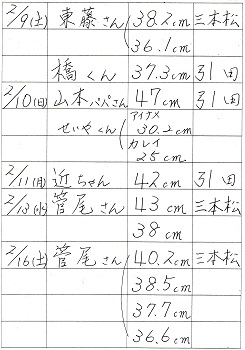 2/9(土) 東藤さん 38.2cm 三本松
36.1cm
橋くん 37.3cm 引田
2/10(日) 山本パパさん 47cm 引田
せいやくん アイナメ 30.2cm
カレイ 25cm
2/11(月) 近ちゃん 42cm 引田
2/13(水) 菅尾さん 43cm 三本松
38cm
2/16(土) 菅尾さん 40.2cm 三本松
38.5cm
37.7cm
36.6cm